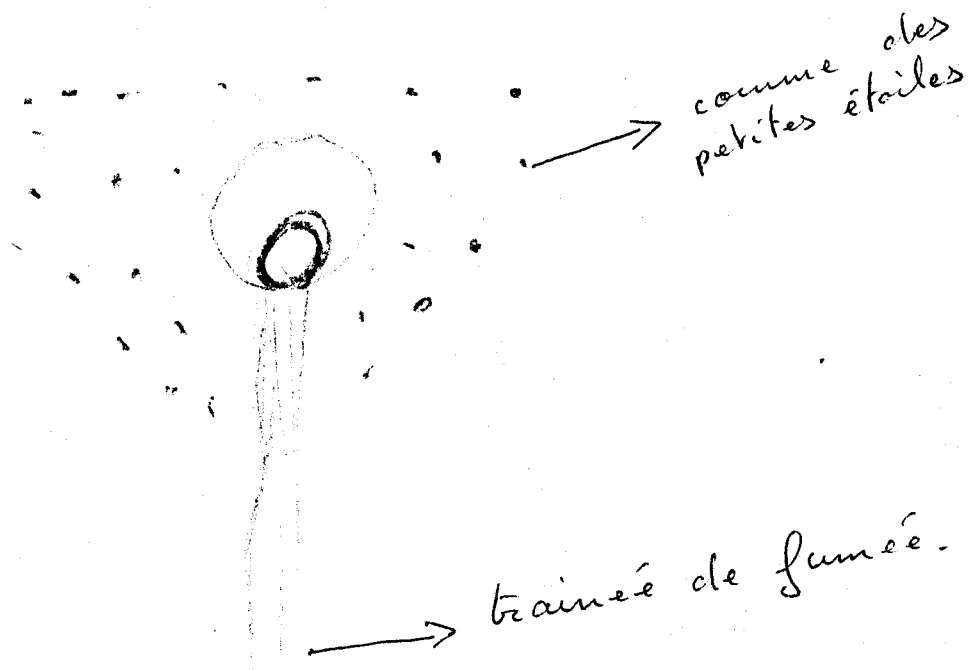 comme des
petites étoiles
trainée de fumée.